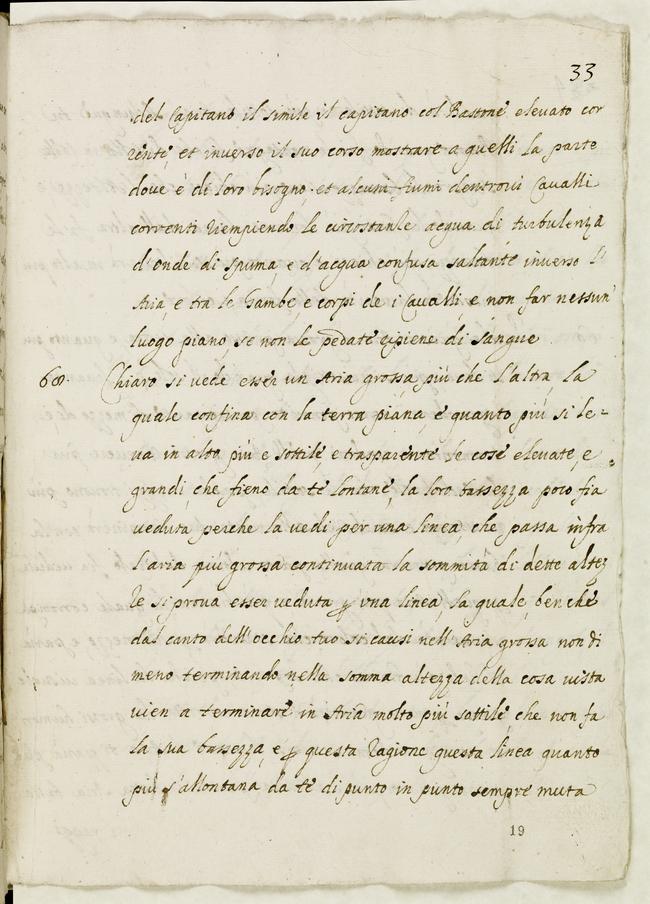 33
del Capitano il simile il capitano col Bastone elevato cor
rente, et inverso il suo corso mostrare a quelli la parte
dove è di loro bisogno, et alcuni fiumi dentrovi Cavalli
correnti riempiendo le circostante acqua di turbulenza
d'onde di spuma, e d'acqua confusa saltante inverso l'
Aria, e tra le Gambe, e corpi de i Cavalli, e non far nessun'
luogo piano, se non le pedate ripiene di sangue
68. Chiaro si vede esser un Aria grossa più che l'altra, la
quale confina con la terra piana, e quanto più si le=
va in alto più e sottile, e trasparente le cose elevate, e
grandi, che fieno da te lontane, la loro bassezza poco fia
veduta perche la vedi per una linea, che passa infra
l'aria più grossa continuata la sommità di dette altez
ze si prova esser veduta ꝑ una linea, la quale, ben che
dal canto dell'occhio tuo si causi nell'Aria grossa non di
meno terminando nella somma altezza della cosa vista
vien a terminare in Aria molto più sottile, che non fa
la sua bassezza, e ꝑ questa ragione questa linea quanto
più s'allontana da te di punto in punto sempre muta
19